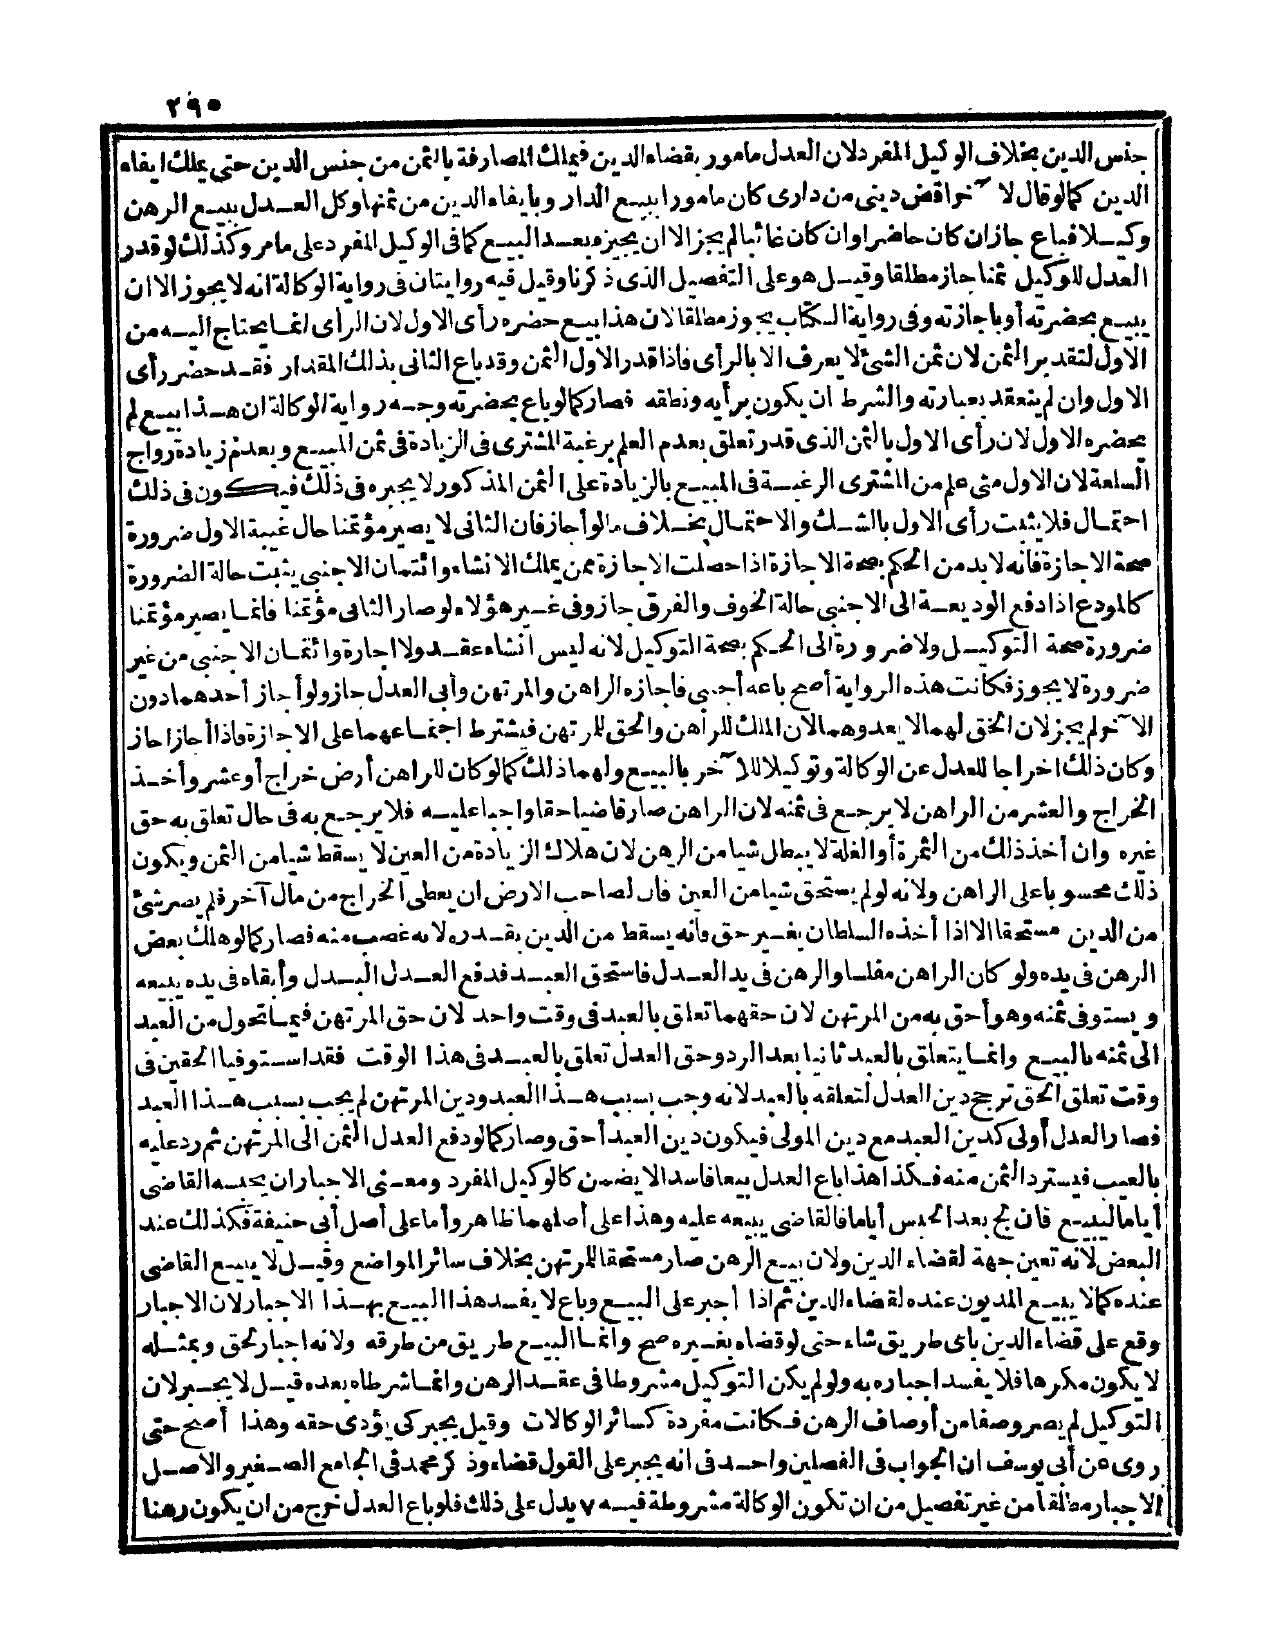 ٢٩٥
جنس الدين بخلاف الوكيل المفرد لان العدل مامور بقضاء الدين فيملك المصارفة بالثمن من جنس الدين حتى يملك ايفاء
الدين كما لو قال لآخر اقض ديني من داري كان مامورا ببيع الدار وبايفاء الدين من ثمنها وكل العدل ببيع الرهن
وكيلا فباع جاز ان كان حاضرا وان كان غائبا لم يجز الا ان يجيزه بعد البيع كما في الوكيل المفرد على ما مر وكذلك لو قدر
العدل للوكيل ثمنا جاز مطلقا وقيل هو على التفصيل الذى ذكرنا وقيل فيه روايتان في رواية الوكالة انه لا يجوز الا ان
يبيع بحضرته أو باجازته وفى رواية الكتاب يجوز مطلقا لان هذا بيع حضره رأى الاول لان الرأى انما يحتاج اليه من
الاول لتقدير الثمن لان ثمن الشئ لا يعرف الا بالرأى فاذا قدر الاول الثمن وقد باع الثانى بذلك المقدار فقد حضر رأى
الاول وان لم ينعقد بعبارته والشرط ان يكون برأيه ونطقه فصار كما لو باع بحضرته وجه رواية الوكالة ان هذا بيع لم
يحضره الاول لان رأى الاول بالثمن الذى قدر تعلق بعدم العلم برغبة المشترى فى الزيادة فى ثمن المبيع وبعدم زيادة رواج
السلعة لان الاول متى علم من المشترى الرغبة فى المبيع بالزيادة على الثمن المذكور لا يجبره فى ذلك فيكون فى ذلك
احتمال فلا يثبت رأى الاول بالشك والاحتمال بخلاف ما لو أجاز فان الثانى لا يصير مؤتمنا حال غيبة الاول ضرورة
صحة الاجازة فانه لا بد من الحكم بصحة الاجازة اذا حصلت الاجازة ممن يملك الانشاء وائتمان الاجنبى يثبت حالة الضرورة
كالمودع اذا دفع الوديعة الى الاجنبى حالة الخوف والغرق جاز وفى غير هؤلاء لو صار الثانى مؤتمنا فانما يصير مؤتمنا
ضرورة صحة التوكيل ولا ضرورة الى الحكم بصحة التوكيل لانه ليس انشاء عقد ولا اجازة وائتمان الاجنبى من غير
ضرورة لا يجوز فكانت هذه الرواية أصح باعه أجنبى فاجازه الراهن والمرتهن وأبى العدل جاز ولو أجاز أحدهما دون
الآخر لم يجز لان الحق لهما لا يعدوهما لان الملك للراهن والحق للمرتهن فيشترط اجتماعهما على الاجازة فاذا أجازا جاز
وكان ذلك اخراجا للعدل عن الوكالة وتوكيلا للآخر بالبيع ولهما ذلك كما لو كان للراهن أرض خراج أو عشر وأخذ
الخراج والعشر من الراهن لا يرجع فى ثمنه لان الراهن صار قاضيا حقا واجبا عليه فلا يرجع به فى حال تعلق به حق
غيره وان أخذ ذلك من الثمرة أو الغلة لا يبطل شيا من الرهن لان هلاك الزيادة من العين لا يسقط شيا من الثمن ويكون
ذلك محسوبا على الراهن ولانه لو لم يستحق شيا من العين فان لصاحب الارض ان يعطى الخراج من مال آخر فلم يصر شئ
من الدين مستحقا الا اذا أخذه السلطان بغير حق فانه يسقط من الدين بقدره لانه غصب منه فصار كما لو هلك بعض
الرهن فى يده ولو كان الراهن مفلسا والرهن فى يد العدل فاستحق العبد فدفع العدل البدل وأبقاه فى يده يبيعه
ويستوفى ثمنه وهو أحق به من المرتهن لان حقهما تعلق بالعبد فى وقت واحد لان حق المرتهن فيما تحول من العبد
الى ثمنه بالبيع وانما يتعلق بالعبد ثانيا بعد الرد وحق العدل تعلق بالعبد فى هذا الوقت فقد استوفيا الحقين فى
وقت تعلق الحق ترجح دين العدل لتعلقه بالعبد لانه وجب بسبب هذا العبد ودين المرتهن لم يجب بسبب هذا العبد
فصار العدل أولى كدين العبد مع دين المولى فيكون دين العبد أحق وصار كما لو دفع العدل الثمن الى المرتهن ثم رد عليه
بالعيب فيسترد الثمن منه فكذا هذا باع العدل بيعا فاسدا لا يضمن كالوكيل المفرد ومعنى الاجبار ان يحبسه القاضى
أياما ليبيع فان لج بعد الحبس أياما فالقاضى يبيعه عليه وهذا على أصلهما ظاهر وأما على أصل أبى حنيفة فكذلك عند
البعض لانه تعين جهة لقضاء الدين ولان بيع الرهن صار مستحقا للمرتهن بخلاف سائر المواضع وقيل لا يبيع القاضى
عنده كما لا يبيع المديون عنده لقضاء الدين ثم اذا أجبر على البيع وباع لا يفسد هذا البيع بهذا الاجبار لان الاجبار
وقع على قضاء الدين باى طريق شاء حتى لو قضاه بغيره صح وانما البيع طريق من طرقه ولانه اجبار بحق وبمثله
لا يكون مكرها فلا يفسد اجباره به ولو لم يكن التوكيل مشروطا فى عقد الرهن وانما شرطاه بعده قيل لا يجبر لان
التوكيل لم يصر وصفا من أوصاف الرهن فكانت مفردة كسائر الوكالات وقيل يجبر كى يؤدى حقه وهذا أصح حتى
روى عن أبى يوسف ان الجواب فى الفصلين واحد فى انه يجبر على القول قضاء وذكر محمد فى الجامع الصغير والاصل
الاجبار مطلقا من غير تفصيل من ان تكون الوكالة مشروطة فيه ٧ يدل على ذلك فلو باع العدل خرج من ان يكون رهنا